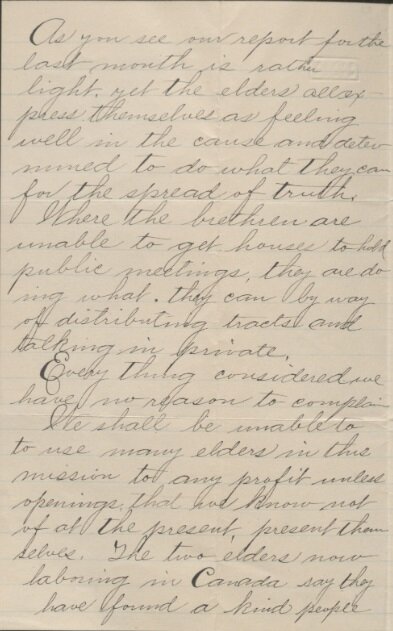 As you see our report for the
last month is rather
light, yet the elders all ex-
press themselves as feeling
well in the cause and deter
mined to do what they can
for the spread of truth.
Where the brethren are
unable to get houses to hold
public meetings, they are do
ing what. they can by way
of distributing tracts and
talking in private.
Every thing considered we
have no reason to complain
We shall be unable to
to use many elders in this
mission to any profit unless
openings, that we know not
of at the present, present them
selves. The two elders now
laboring in Canada say they
have found a kind people